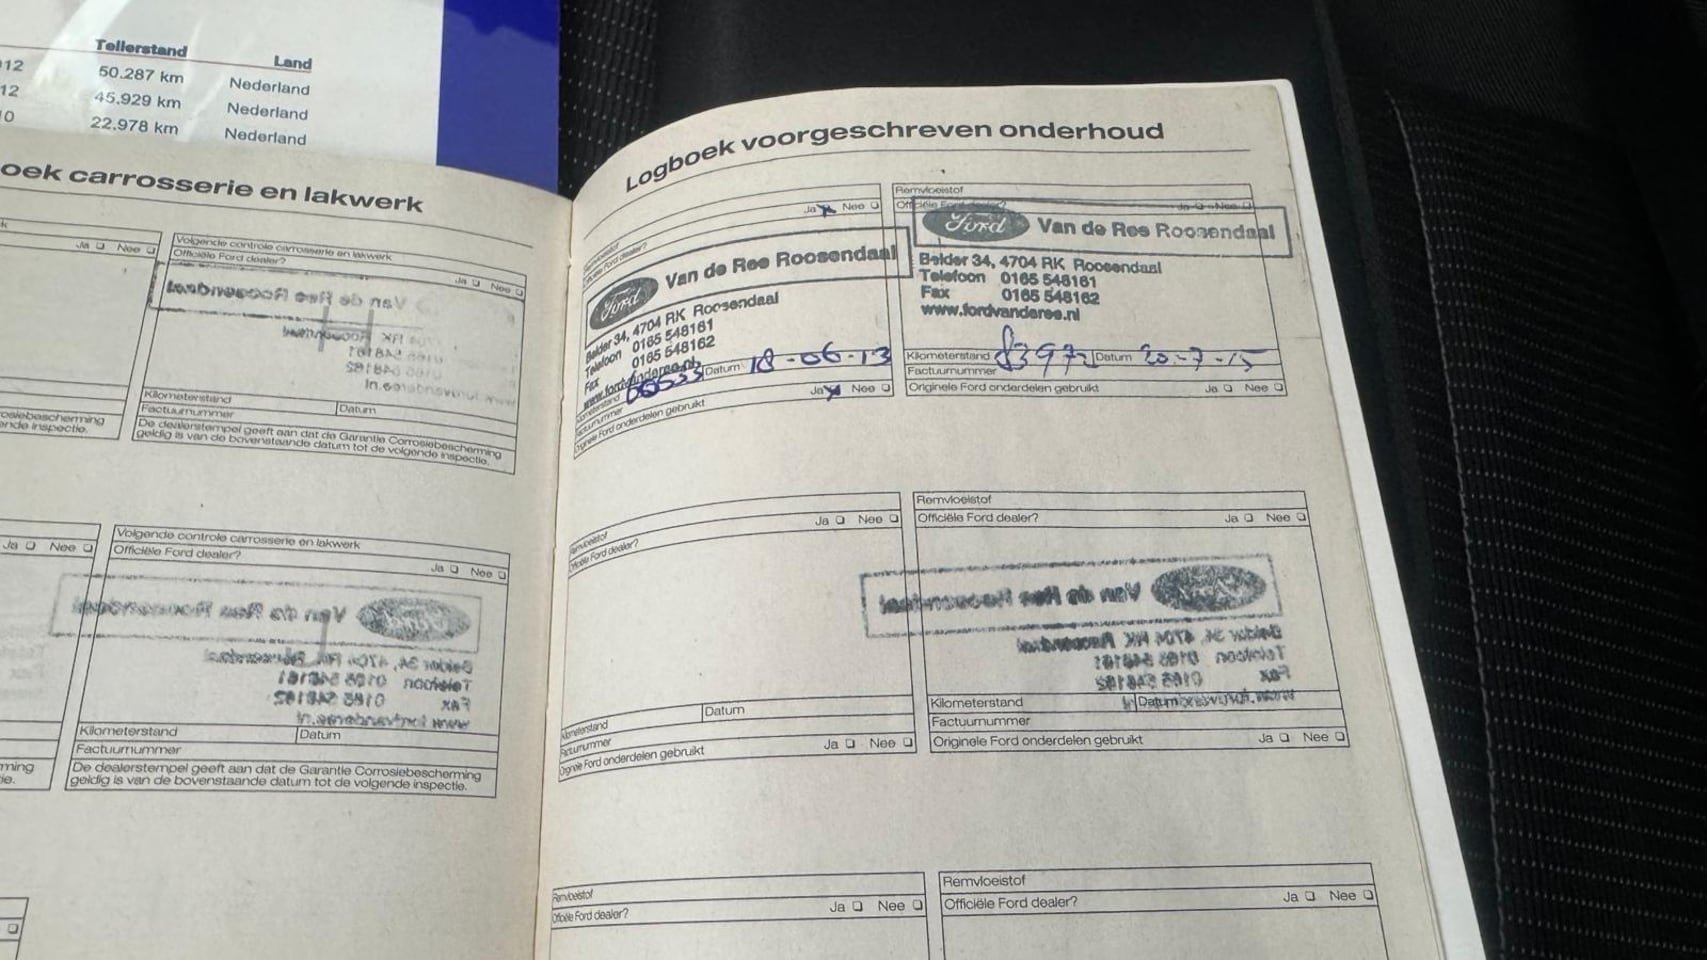 Tellerstand Land
12 50.287 km Nederland
12 45.929 km Nederland
10 22.978 km Nederland
oek carrosserie en lakwerk
Ja Nee
Volgende controle carrosserie en lakwerk
Officiële Ford dealer?
Ja Nee
Kilometerstand
Factuurnummer Datum
De dealerstempel geeft aan dat de Garantie Corrosiebescherming
geldig is van de bovenstaande datum tot de volgende inspectie.
osiebescherming
nde inspectie.
Ja Nee
Volgende controle carrosserie en lakwerk
Officiële Ford dealer?
Ja Nee
Kilometerstand Datum
Factuurnummer
De dealerstempel geeft aan dat de Garantie Corrosiebescherming
geldig is van de bovenstaande datum tot de volgende inspectie.
ming
ie.
Logboek voorgeschreven onderhoud
Remvloeistof
Officiële Ford dealer? Ja Nee
Ford Van de Ree Roosendaal
Belder 34, 4704 RK Roosendaal
Telefoon 0165 548161
Fax 0165 548162
www.fordvanderee.nl
Kilometerstand Datum 18-06-13
Factuurnummer
Originele Ford onderdelen gebruikt Ja Nee
Remvloeistof
Officiële Ford dealer? Ja Nee
Ford Van de Ree Roosendaal
Belder 34, 4704 RK Roosendaal
Telefoon 0165 548161
Fax 0165 548162
www.fordvanderee.nl
Kilometerstand Datum 20-7-15
Factuurnummer
Originele Ford onderdelen gebruikt Ja Nee
Remvloeistof
Officiële Ford dealer? Ja Nee
Kilometerstand Datum
Factuurnummer
Originele Ford onderdelen gebruikt Ja Nee
Remvloeistof
Officiële Ford dealer? Ja Nee
Kilometerstand Datum
Factuurnummer
Originele Ford onderdelen gebruikt Ja Nee
Remvloeistof
Officiële Ford dealer? Ja Nee
Remvloeistof
Officiële Ford dealer? Ja Nee